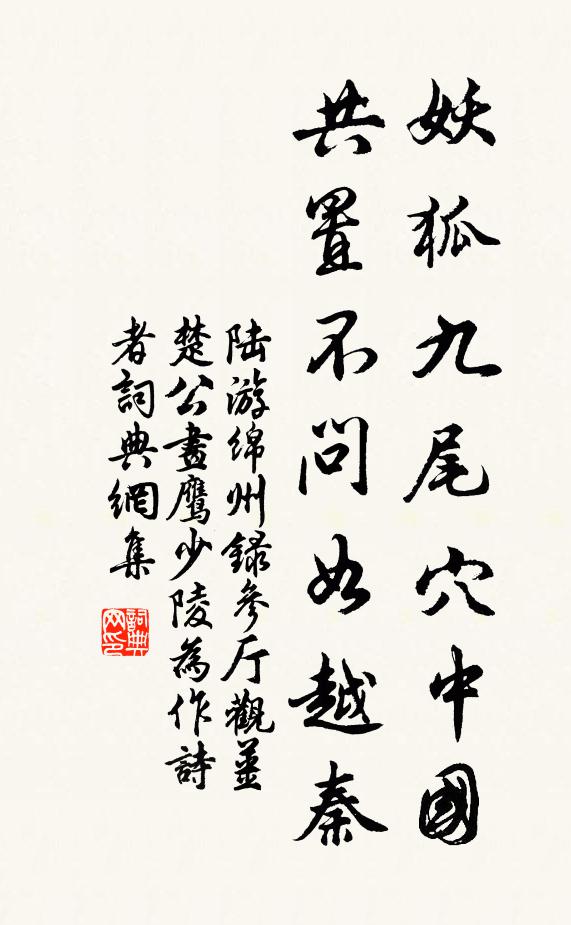 妖狐九尾穴中國
共置不問如越秦
陆游綿州録參厅觀姜
楚公畫鷹少陵為作詩
者詞典網集
詞典
网印